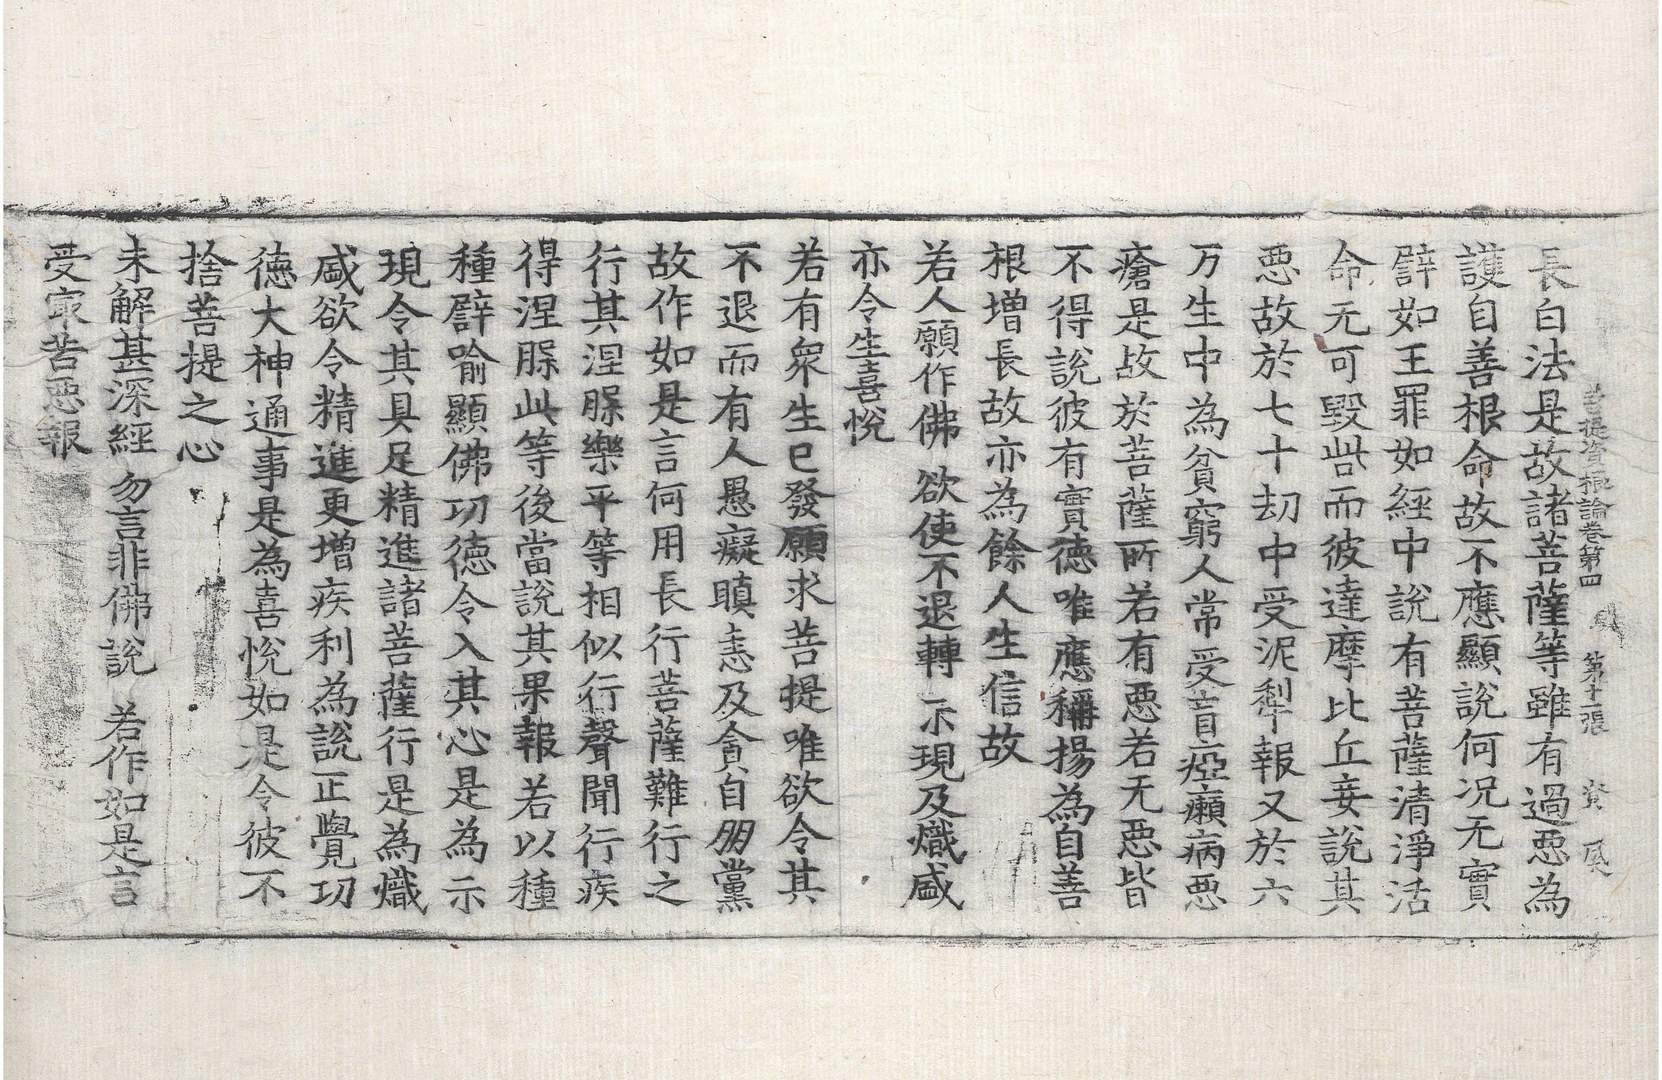 菩提資糧論卷第四 第十一張 資
長白法是故諸菩薩等雖有過惡為
護自善根命故不應顯說何況无實
譬如王罪如經中說有菩薩清淨活
命无可毀呰而彼達摩比丘妄說其
惡故於七十劫中受泥犁報又於六
万生中為貧窮人常受盲瘂癩病惡
瘡是故於菩薩所若有惡若无惡皆
不得說彼有實德唯應稱揚為自善
根增長故亦為餘人生信故
若人願作佛 欲使不退轉 示現及熾盛
亦令生喜悅
若有眾生已發願求菩提唯欲令其
不退而有人愚癡瞋恚及貪自朋黨
故作如是言何用長行菩薩難行之
行其涅槃樂平等相似行聲聞行疾
得涅槃此等後當說其果報若以種
種譬喻顯佛功德令入其心是為示
現令其具足精進諸菩薩行是為熾
盛欲令精進更增疾利為說正覺功
德大神通事是為喜悅如是令彼不
捨菩提之心
未解甚深經 勿言非佛說 若作如是言
受最苦惡報